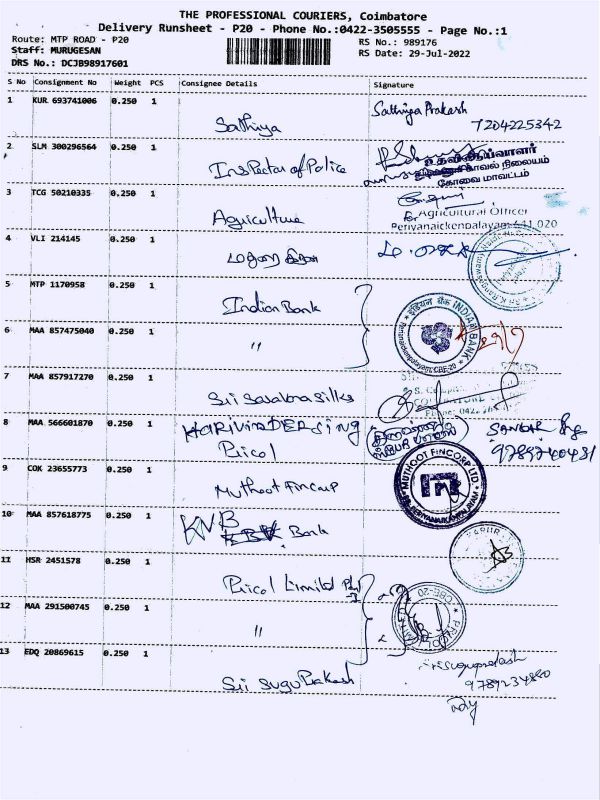 THE PROFESSIONAL COURIERS, Coimbatore
Delivery Runsheet - P20 - Phone No.:0422-3505555 - Page No.:1
Route: MTP ROAD - P20
RS No.: 989176
Staff: MURUGESAN
RS Date: 29-Jul-2022
DRS No.: DCJB98917601
S No Consignment No Weight PCS Consignee Details Signature
1 KUR 693741006 0.250 1 Sathiya Sathiya Prakash
7204225342
2 SLM 300296564 0.250 1 Inspector of Police
உதவி ஆய்வாளர்
காவல் நிலையம்
கோவை மாவட்டம்
3 TCG 50210335 0.250 1 Agriculture
for Agricultural Officer
Periyanaickenpalayam-641 020
4 VLI 214145 0.250 1
5 MTP 1170958 0.250 1 Indian Bank
इंडियन बैंक INDIAN BANK
6 MAA 857475040 0.250 1 "
7 MAA 857917270 0.250 1 Sri Sasabna Silks
8 MAA 566601870 0.250 1 HARIVINDERSING
Pricol
9789740431
9 COK 23655773 0.250 1 Muthoot Fincorp
MUTHOOT FINCORP LTD
PERIYANAICKANPALAYAM
10 MAA 857618775 0.250 1 KVB Bank
11 HSR 2451578 0.250 1 Pricol Limited
12 MAA 291500745 0.250 1 "
CBE-20
13 EDQ 20869615 0.250 1 Sri Sugu Prakash
Srisuguprakash
9789234880